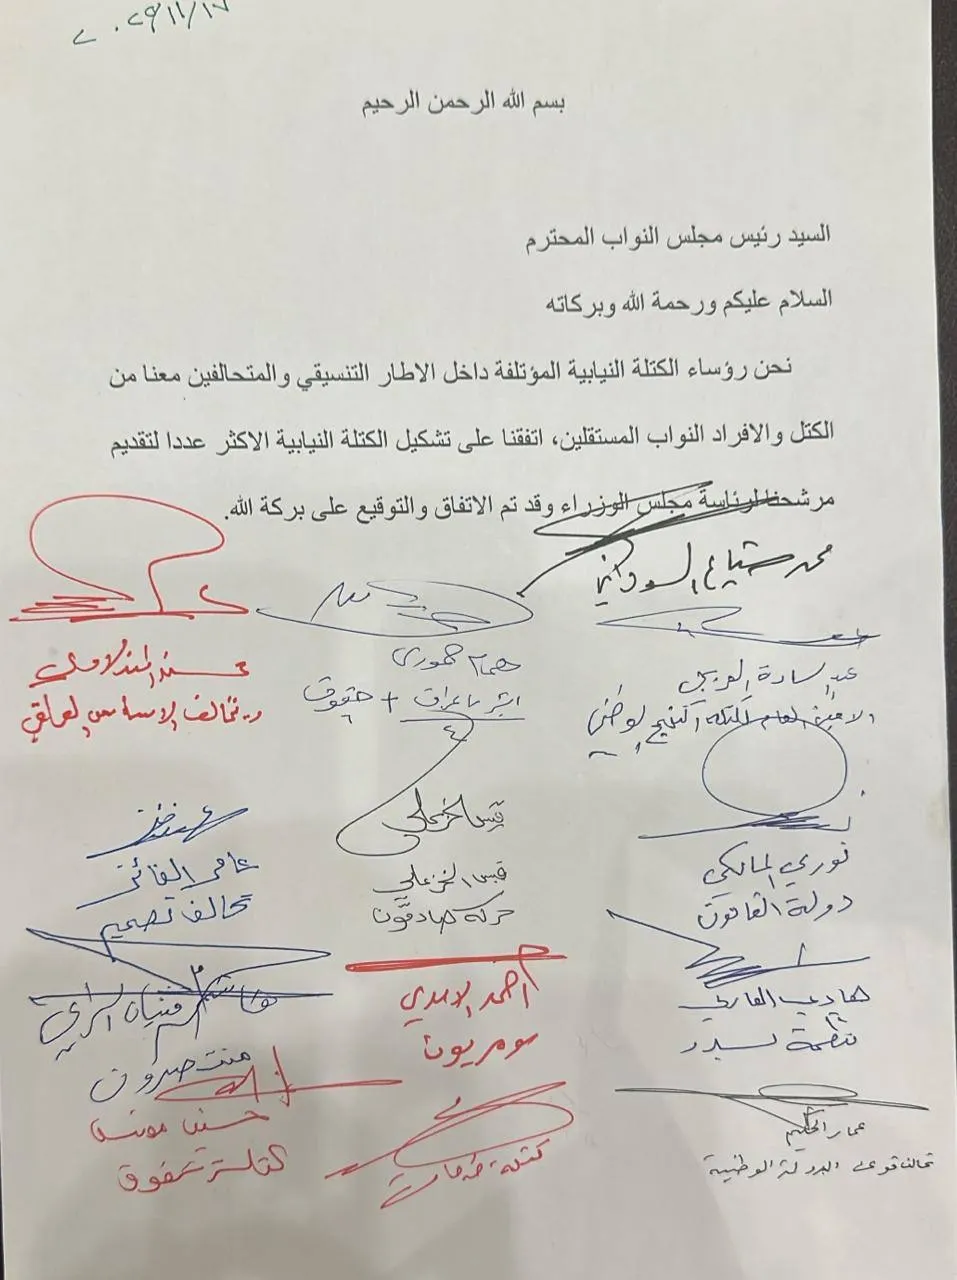 ٢٠٢٥/١١/١٧
بسم الله الرحمن الرحيم
السيد رئيس مجلس النواب المحترم
السلام عليكم ورحمة الله وبركاته
نحن رؤساء الكتلة النيابية المؤتلفة داخل الاطار التنسيقي والمتحالفين معنا من
الكتل والافراد النواب المستقلين، اتفقنا على تشكيل الكتلة النيابية الاكثر عددا لتقديم
مرشحنا لرئاسة مجلس الوزراء وقد تم الاتفاق والتوقيع على بركة الله.
محمد شياع السوداني
همام حمودي
ابشر يا عراق + حقوق
محسن المندلاوي
تحالف الاساس العراقي
عبد السادة الفريجي
الامين العام
قيس الخزعلي
قيس الخزعلي
حركة صادقون
عامر الفائز
تحالف تصميم
نوري المالكي
دولة القانون
هادي العامري
منظمة بدر
احمد الاسدي
سومريون
عمار الحكيم
تحالف قوى الدولة الوطنية
كتلة
حسين مونس